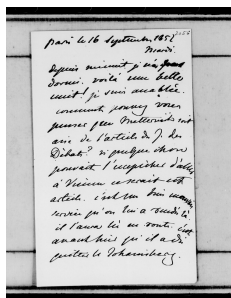 2056
Paris le 16 Septembre 1851
Mardi.
depuis minuit je n'ai
dormi. voilà une belle
nuit! je suis accablée.
comment
pensez que Metternich soit
aise de l'article du J. des
Débats? si quelque chose
pouvait l'empêcher d'aller
à Vienne ce serait cet
article. c'est un bien mauvais
service qu'on lui a rendu là
il l'aura lu en route. c'est
qu'il a dû
quitter le Johannisberg.